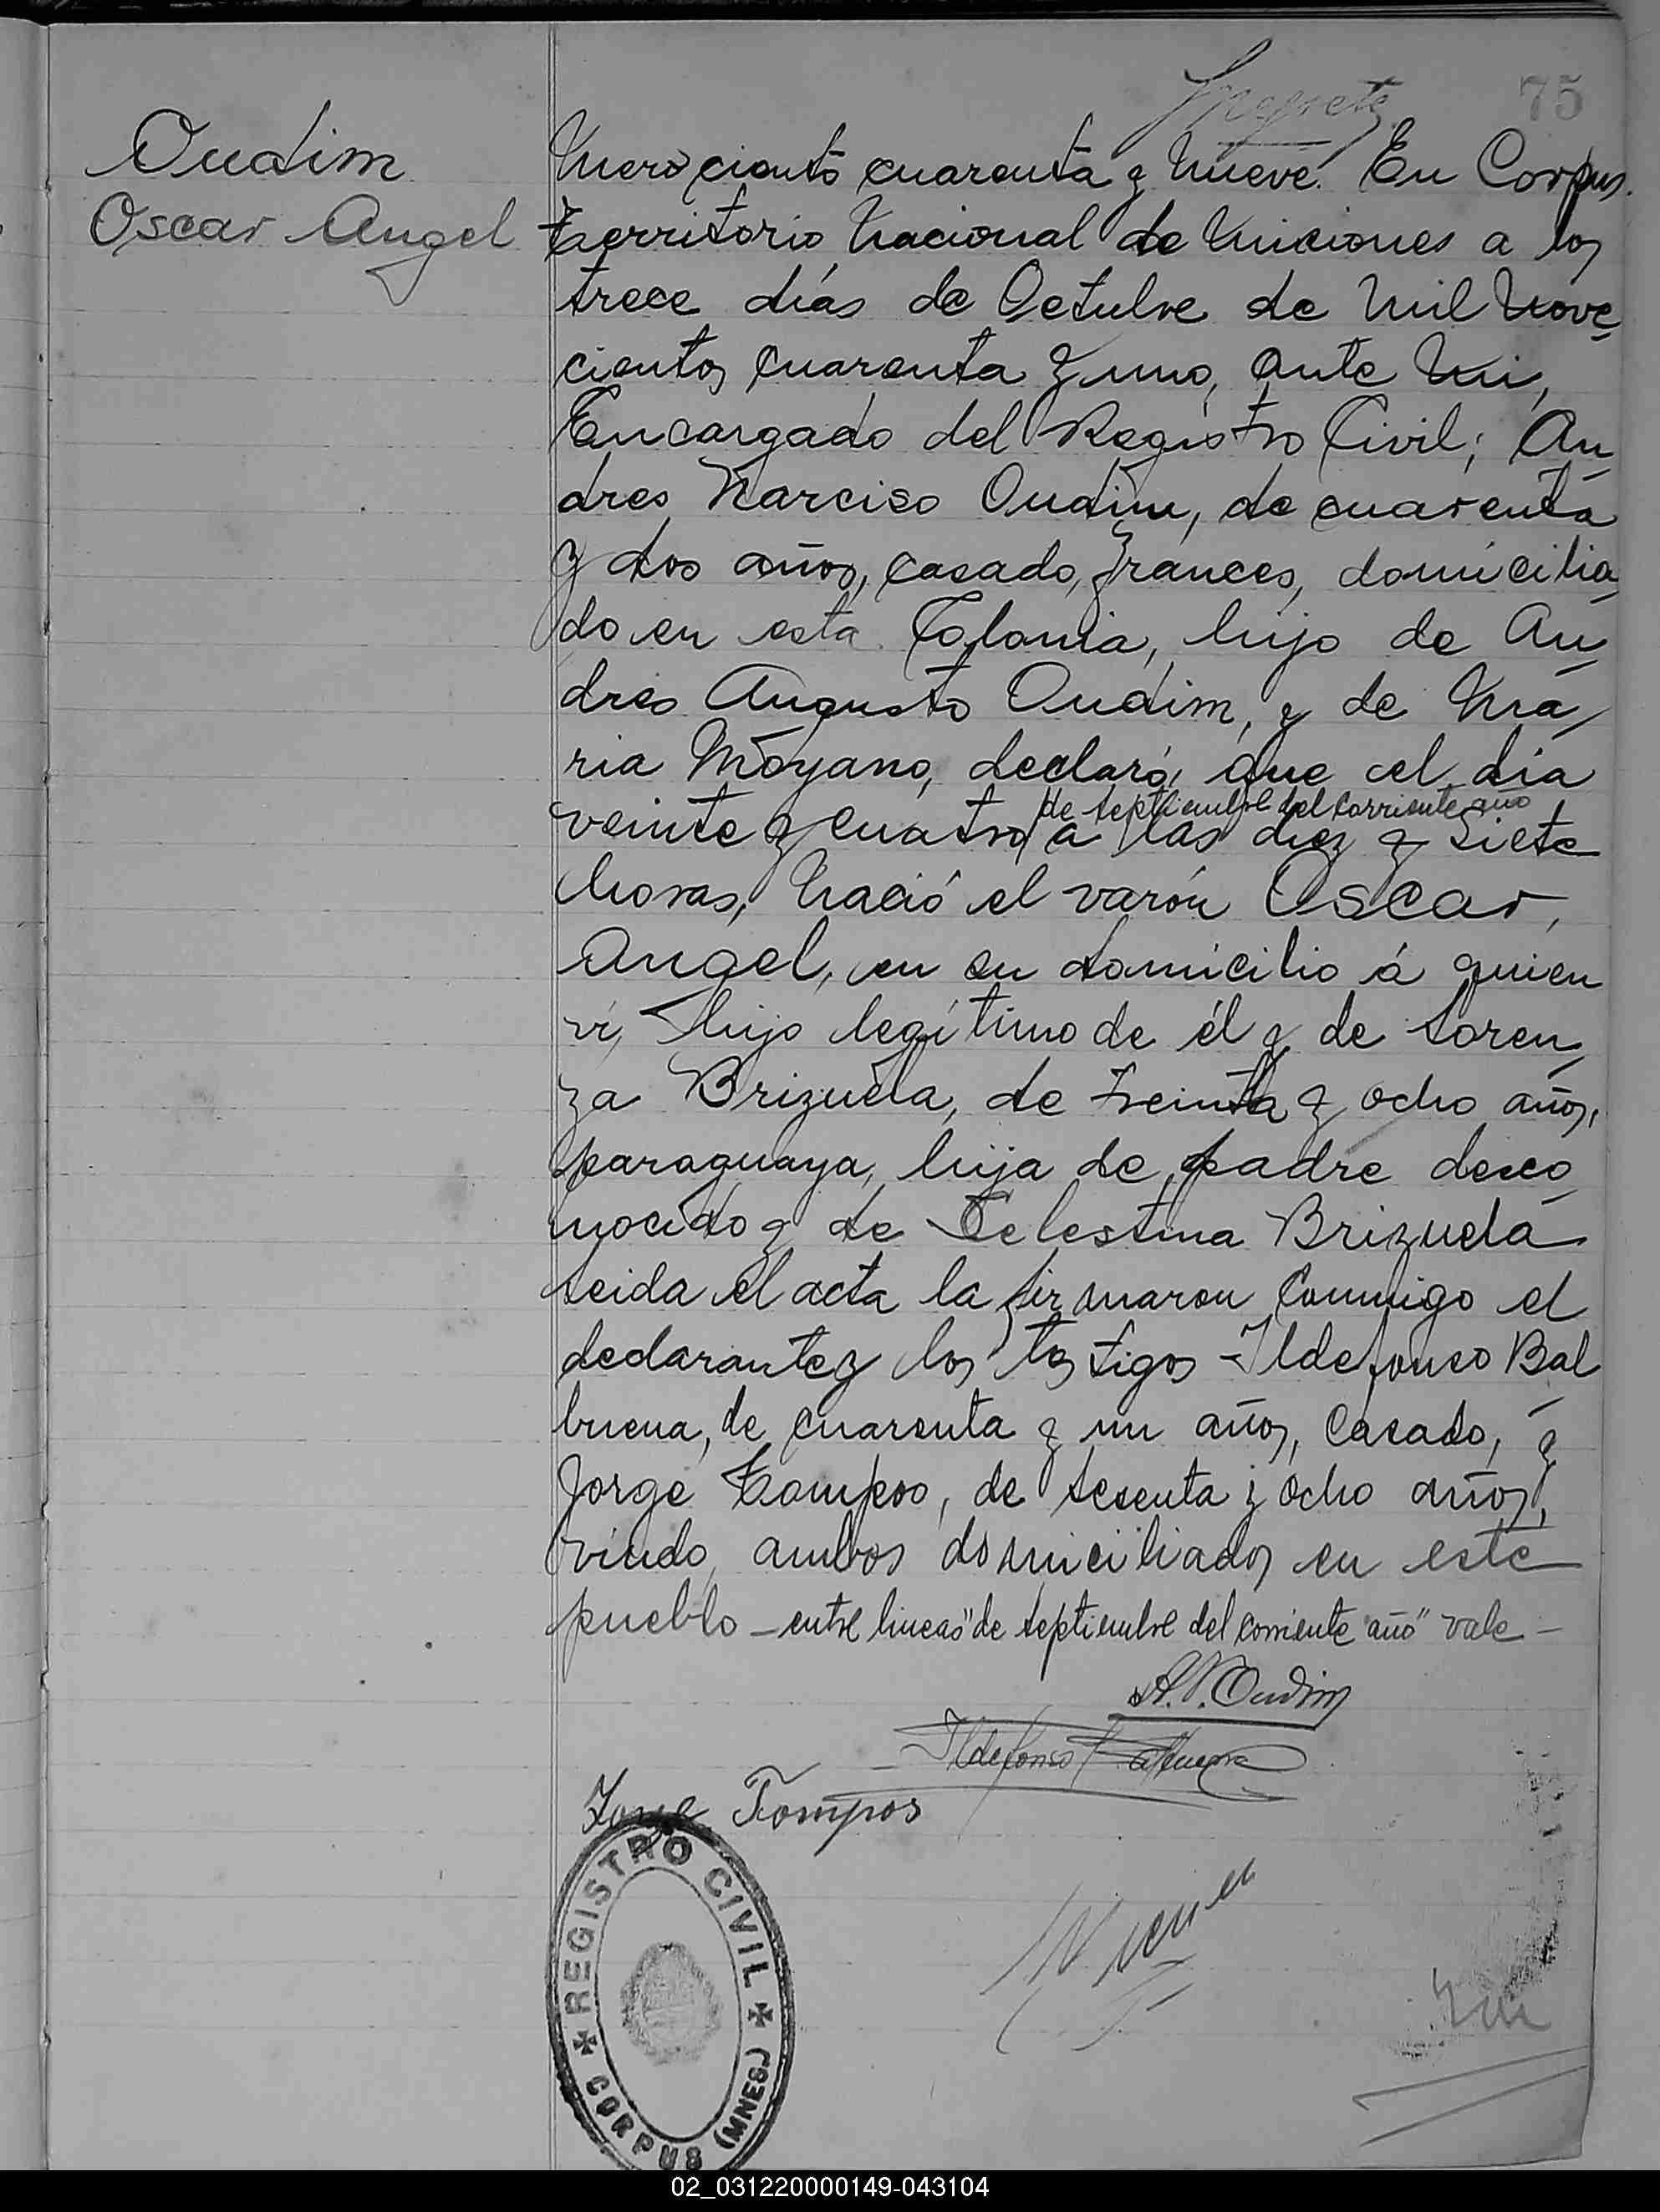 75
Oudim
Oscar Angel
Número ciento cuarenta y Nueve. En Corpus.
Territorio Nacional de Misiones a los
trece días de Octubre de Mil Nove
cientos cuarenta y uno, ante Mi,
Encargado del Registro Civil; An
dres Narciso Oudim, de cuarenta
y dos años, casado, frances, domicilia
do en esta Colonia, hijo de An
dres Augusto Oudim, y de Ma
ria Moyano, declaró, que el día
de septiembre del corriente año
veinte y cuatro a las diez y siete
horas, Nació el varón Oscar,
Angel, en su domicilio á quien
ví, hijo legítimo de él y de Loren
za Brizuela, de treinta y ocho años,
paraguaya, hija de padre desco
nocido y de Celestina Brizuela
Leida el acta la firmaron conmigo el
declarante y los testigos Ildefonso Bal
buena, de cuarenta y un años, casado, y
Jorge Tompos, de sesenta y ocho años,
viudo, ambos domiciliados en este
pueblo - entre lineas "de septiembre del corriente año" vale -
A. N. Oudim
Ildefonso Balbuena
Jorge Tompos
REGISTRO CIVIL
CORPUS (MNES.)
02_031220000149-043104